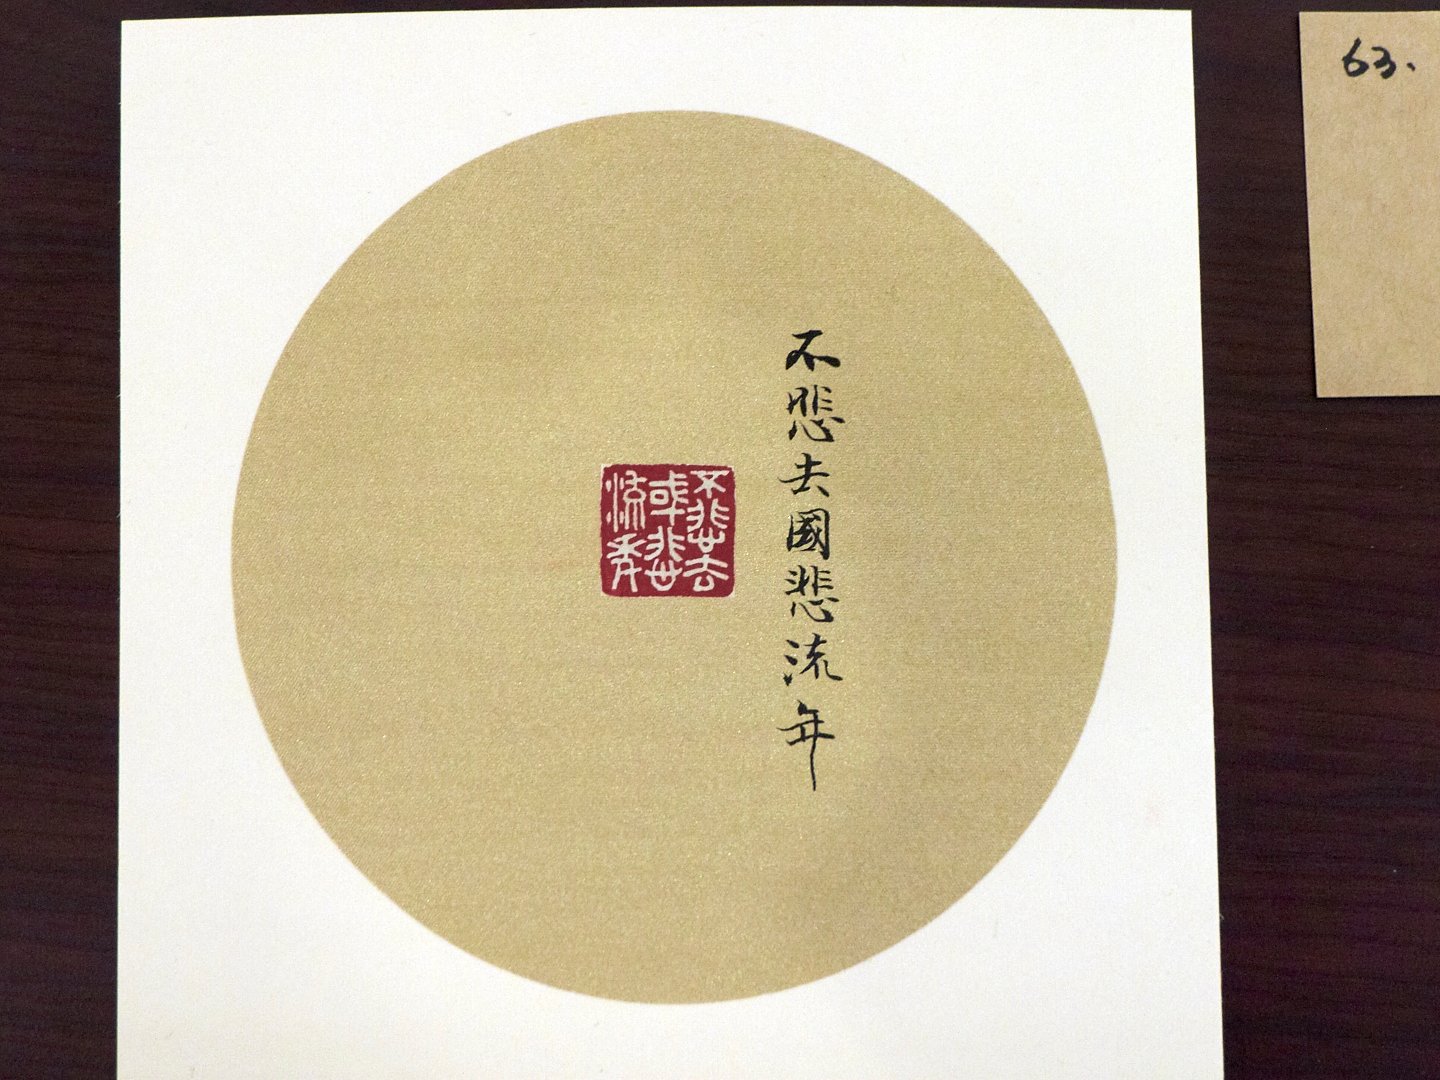 不悲去國悲流年
不悲去
或悲
流年
63.